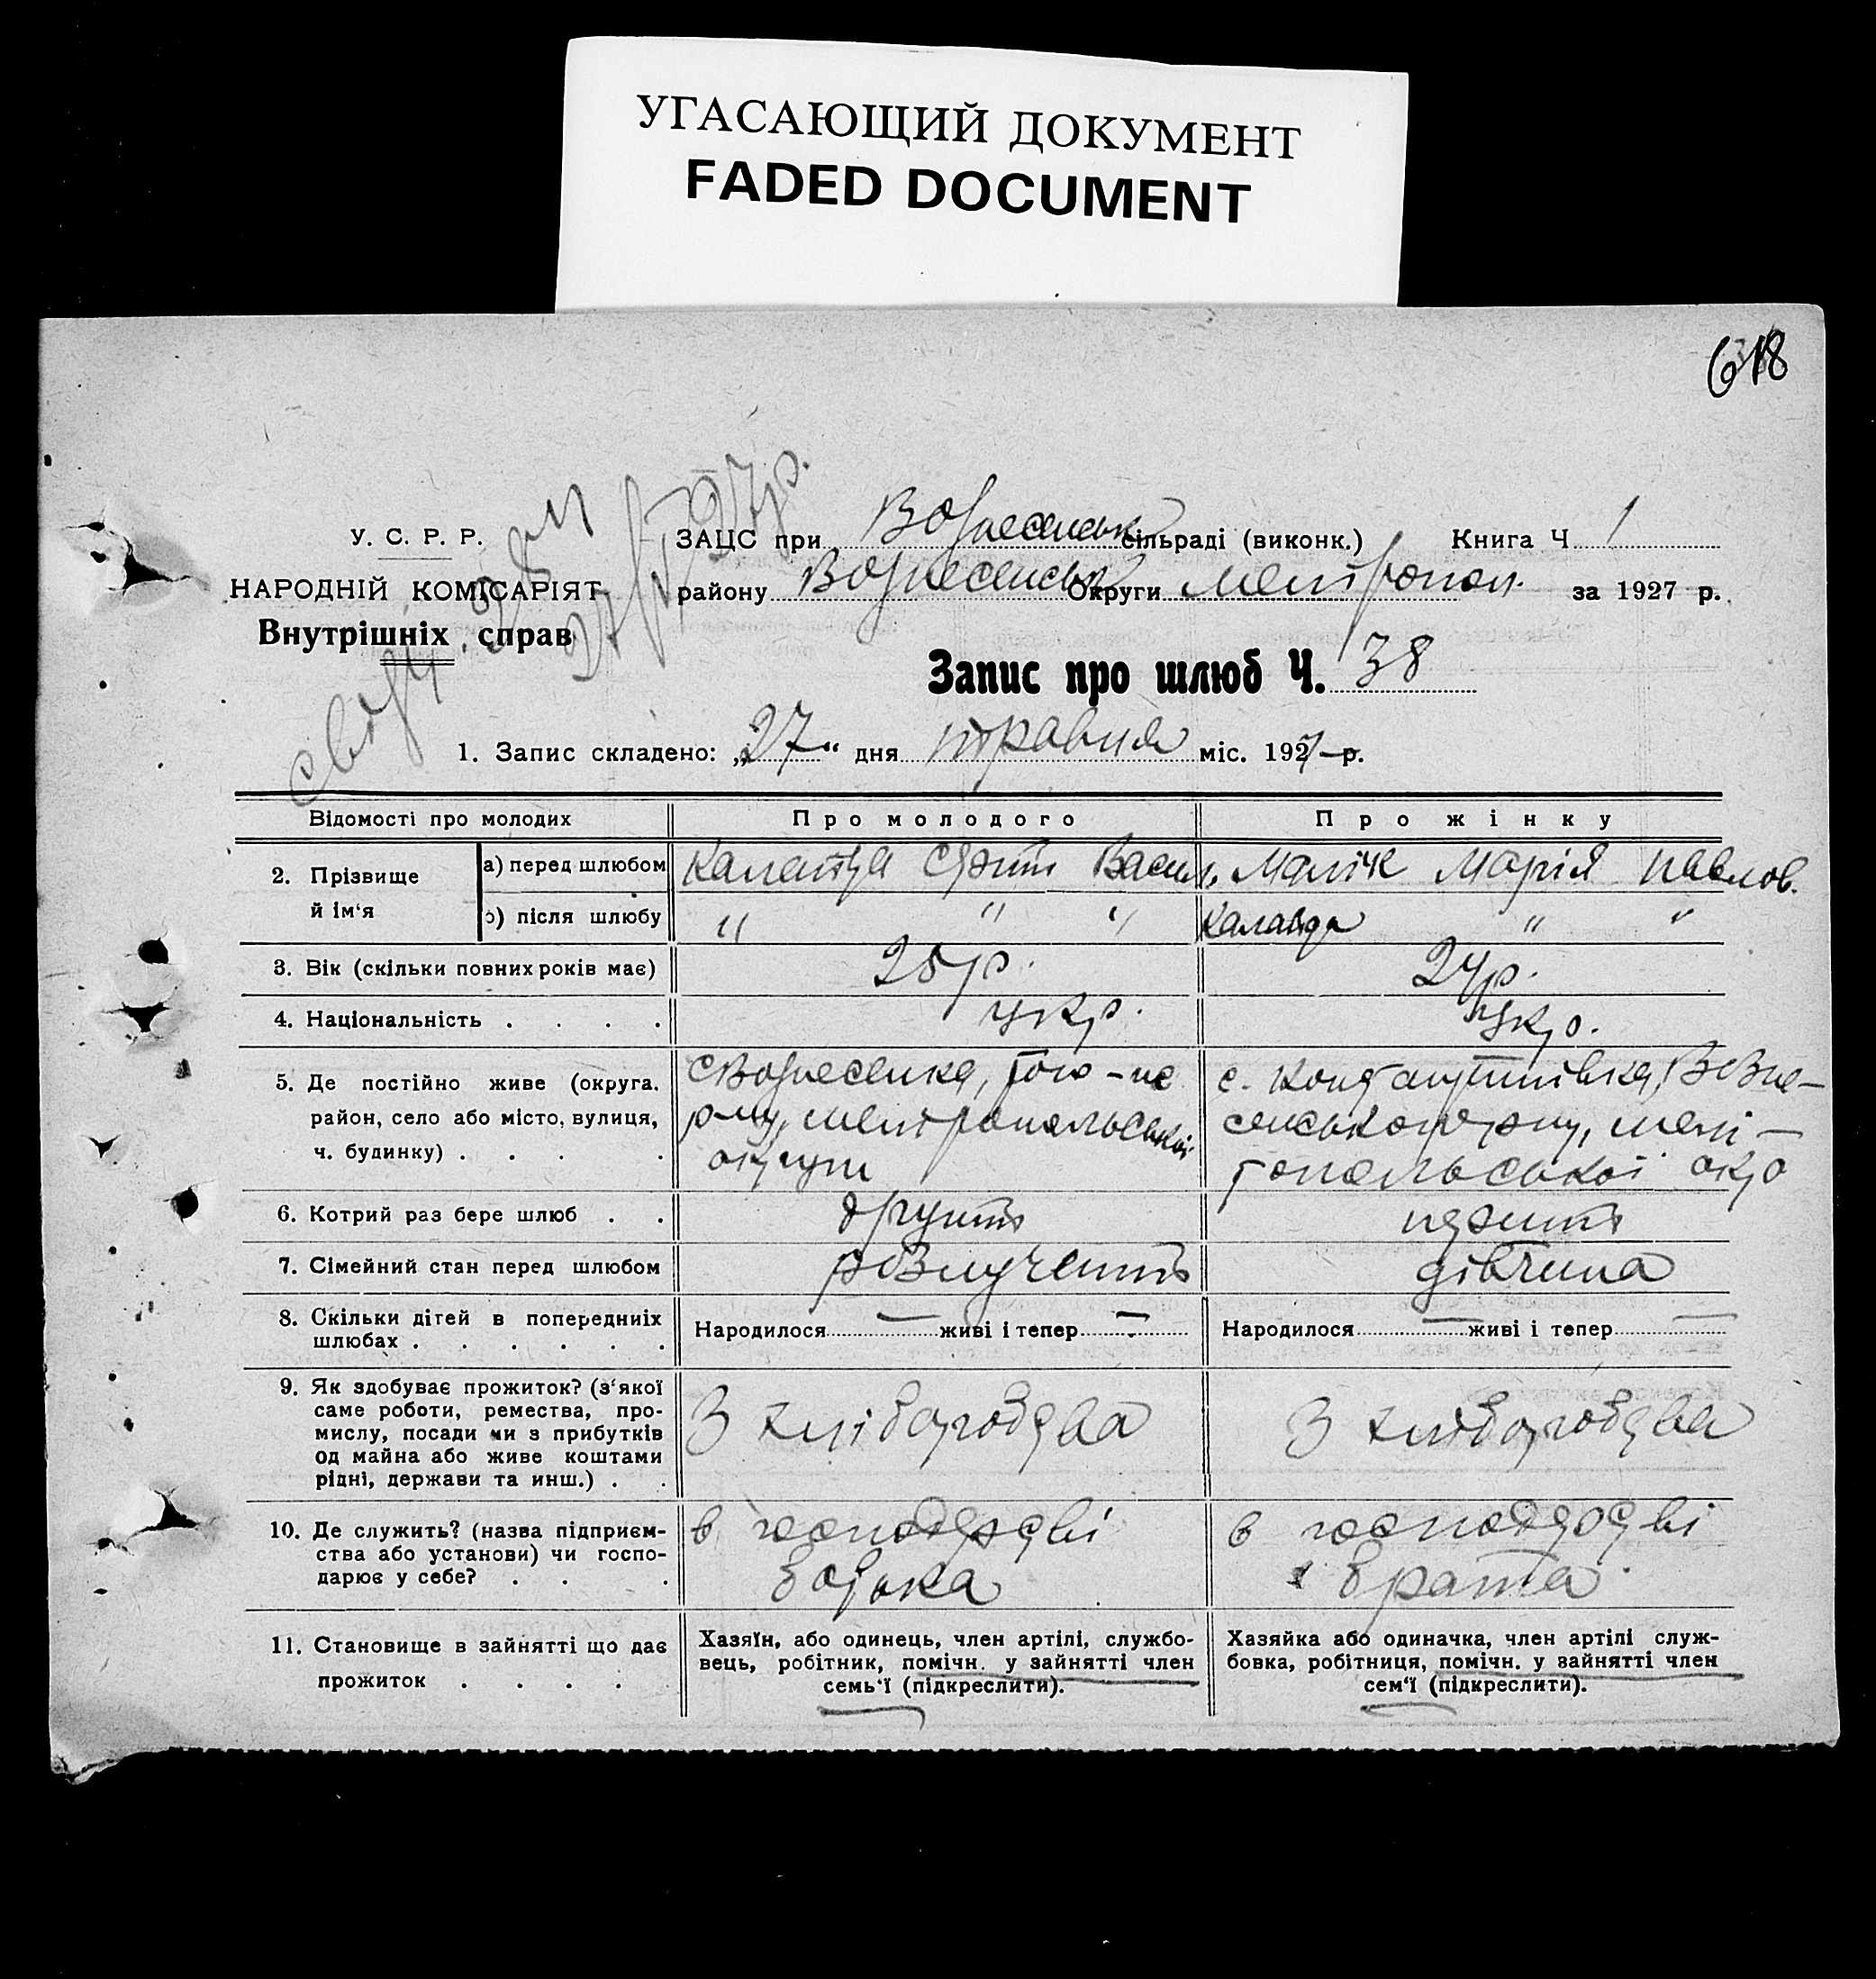 УГАСАЮЩИЙ ДОКУМЕНТ
FADED DOCUMENT
618
У. С. Р. Р.
НАРОДНІЙ КОМІСАРІЯТ
Внутрішніх справ
ЗАЦС при Вознесенськ сільраді (виконк.) Книга Ч 1
району Вознесенськ Округи Мелітопол. за 1927 р.
Запис про шлюб Ч. 38
1. Запис складено: „27“ дня травня міс. 1927 р.
Відомості про молодих Про молодого Про жінку
2. Прізвище й ім‘я
а) перед шлюбом Васил. Марія Павлов.
б) після шлюбу " " " " "
3. Вік (скільки повних років має) 25 р. 24 р.
4. Національність . . . . укр. укр.
5. Де постійно живе (округа,
район, село або місто, вулиця,
ч. будинку) . . . .
с Вознесенка, того-же
р-ну, Мелітопольської
округи
с. Константинівка, Возне-
сенського р-ну, Мелі-
топольської окр
6. Котрий раз бере шлюб . . другий перший
7. Сімейний стан перед шлюбом розлучений дівчина
8. Скільки дітей в попередниіх
шлюбах . . . . . .
Народилося — живі і тепер —
Народилося — живі і тепер —
9. Як здобуває прожиток? (з‘якої
саме роботи, ремества, про-
мислу, посади чи з прибутків
од майна або живе коштами
рідні, держави та инш.) . .
З хліборобства З хліборобства
10. Де служить? (назва підприєм-
ства або установи) чи госпо-
дарює у себе? . . .
в господарстві
батька
в господарстві
брата
11. Становище в зайнятті що дає
прожиток . . . .
Хазяїн, або одинець, член артілі, службо-
вець, робітник, помічн. у зайнятті член
семь‘ї (підкреслити).
Хазяйка або одиначка, член артілі служ-
бовка, робітниця, помічн. у зайнятті член
сем‘ї (підкреслити).